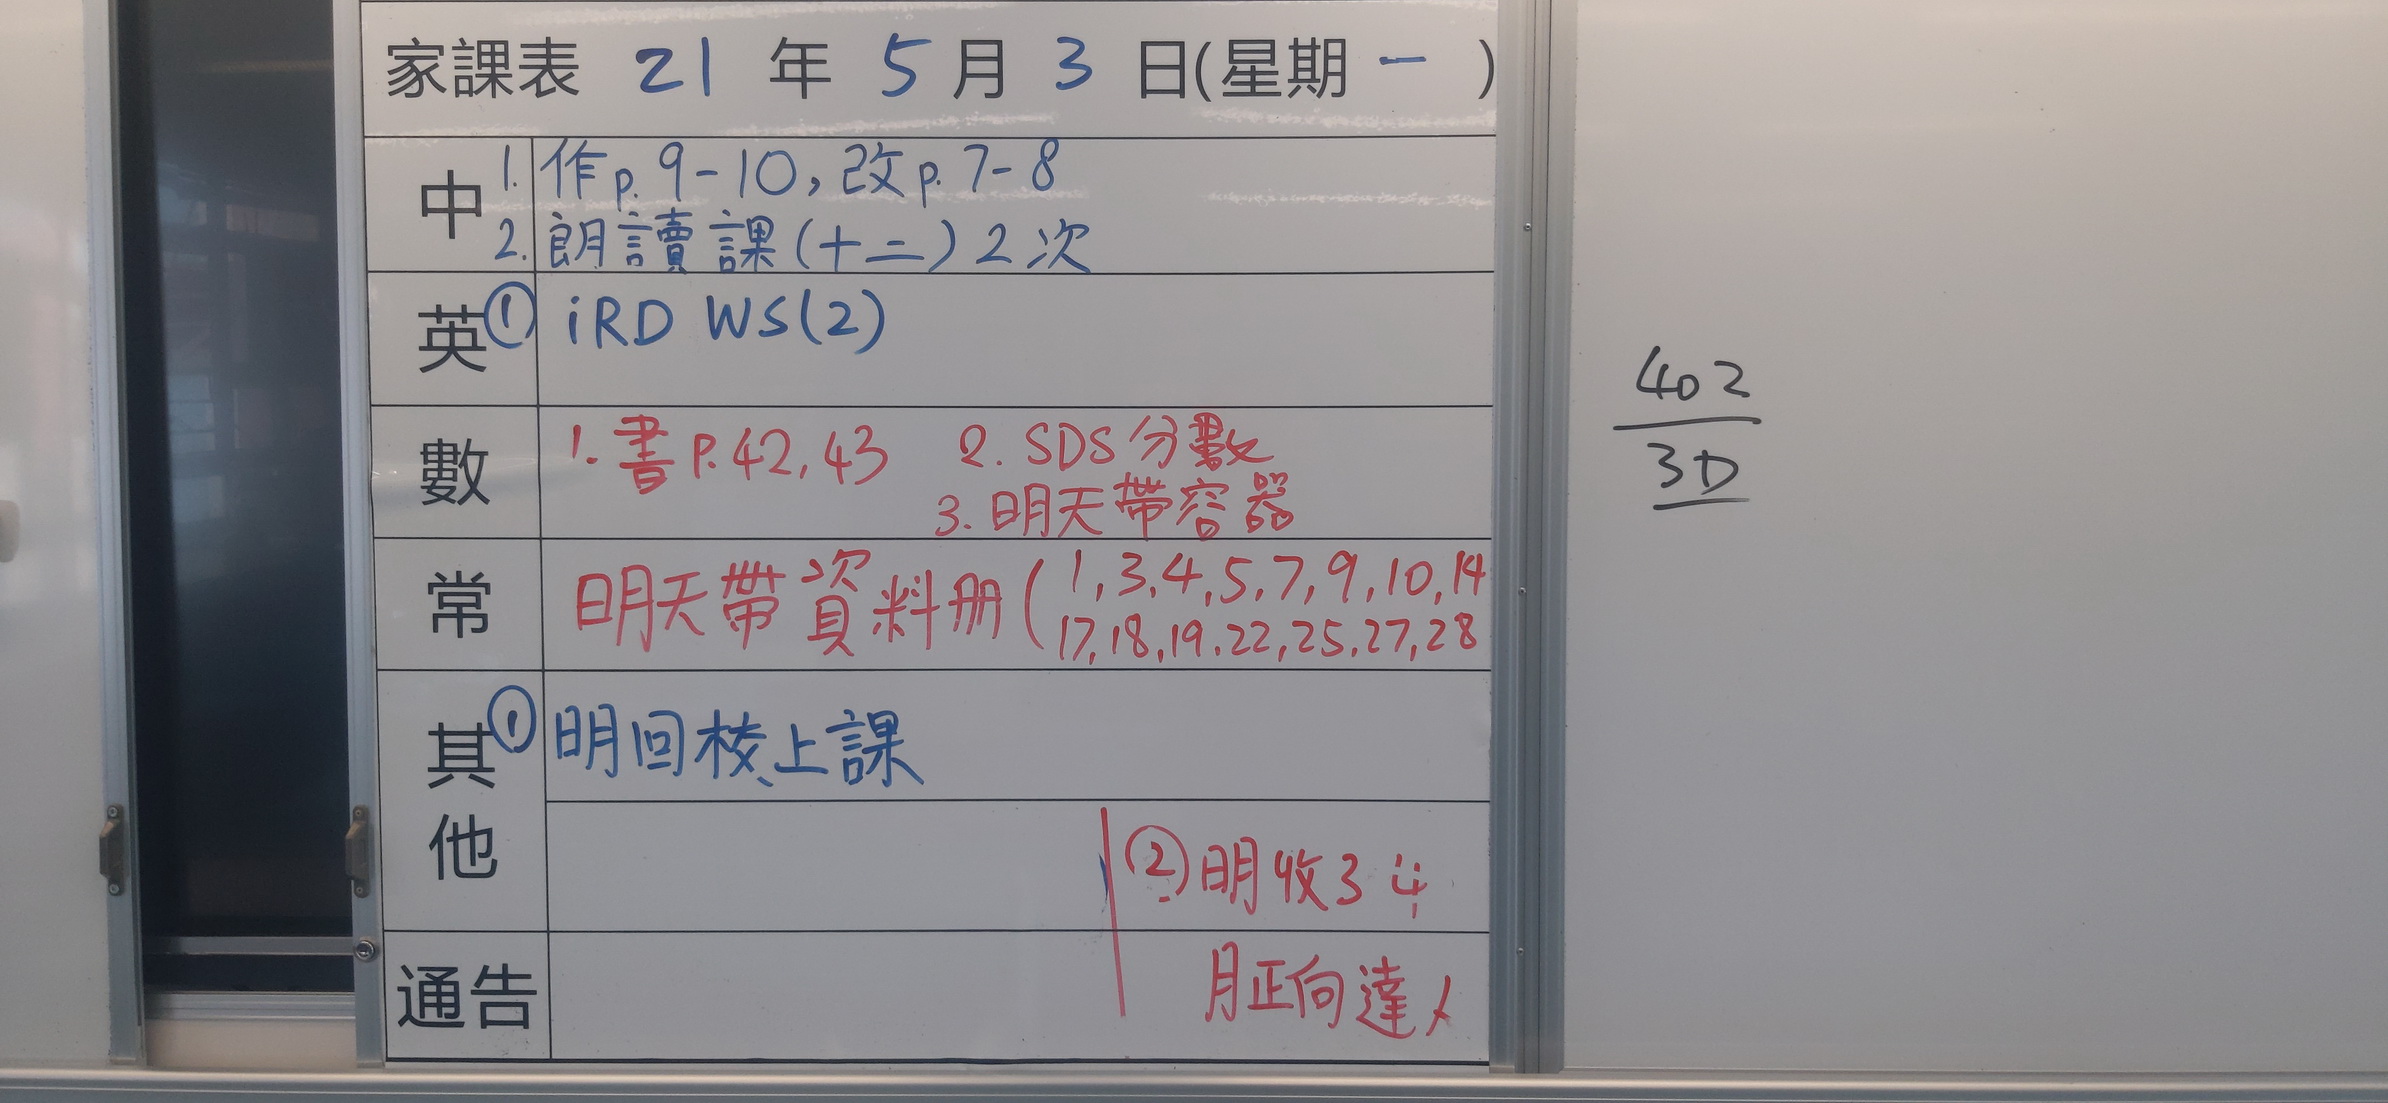 家課表 21 年 5 月 3 日(星期 一 )
中 1. 作p.9-10, 改p.7-8
2. 朗讀課(十二)2次
英 ① iRD WS(2)
數 1. 書P.42,43 2. SDS分數
3. 明天帶容器
常 明天帶資料册(1,3,4,5,7,9,10,14
17,18,19.22,25.27,28
其他 ① 明回校上課
② 明收3 4
通告 月正向達人
402
3D